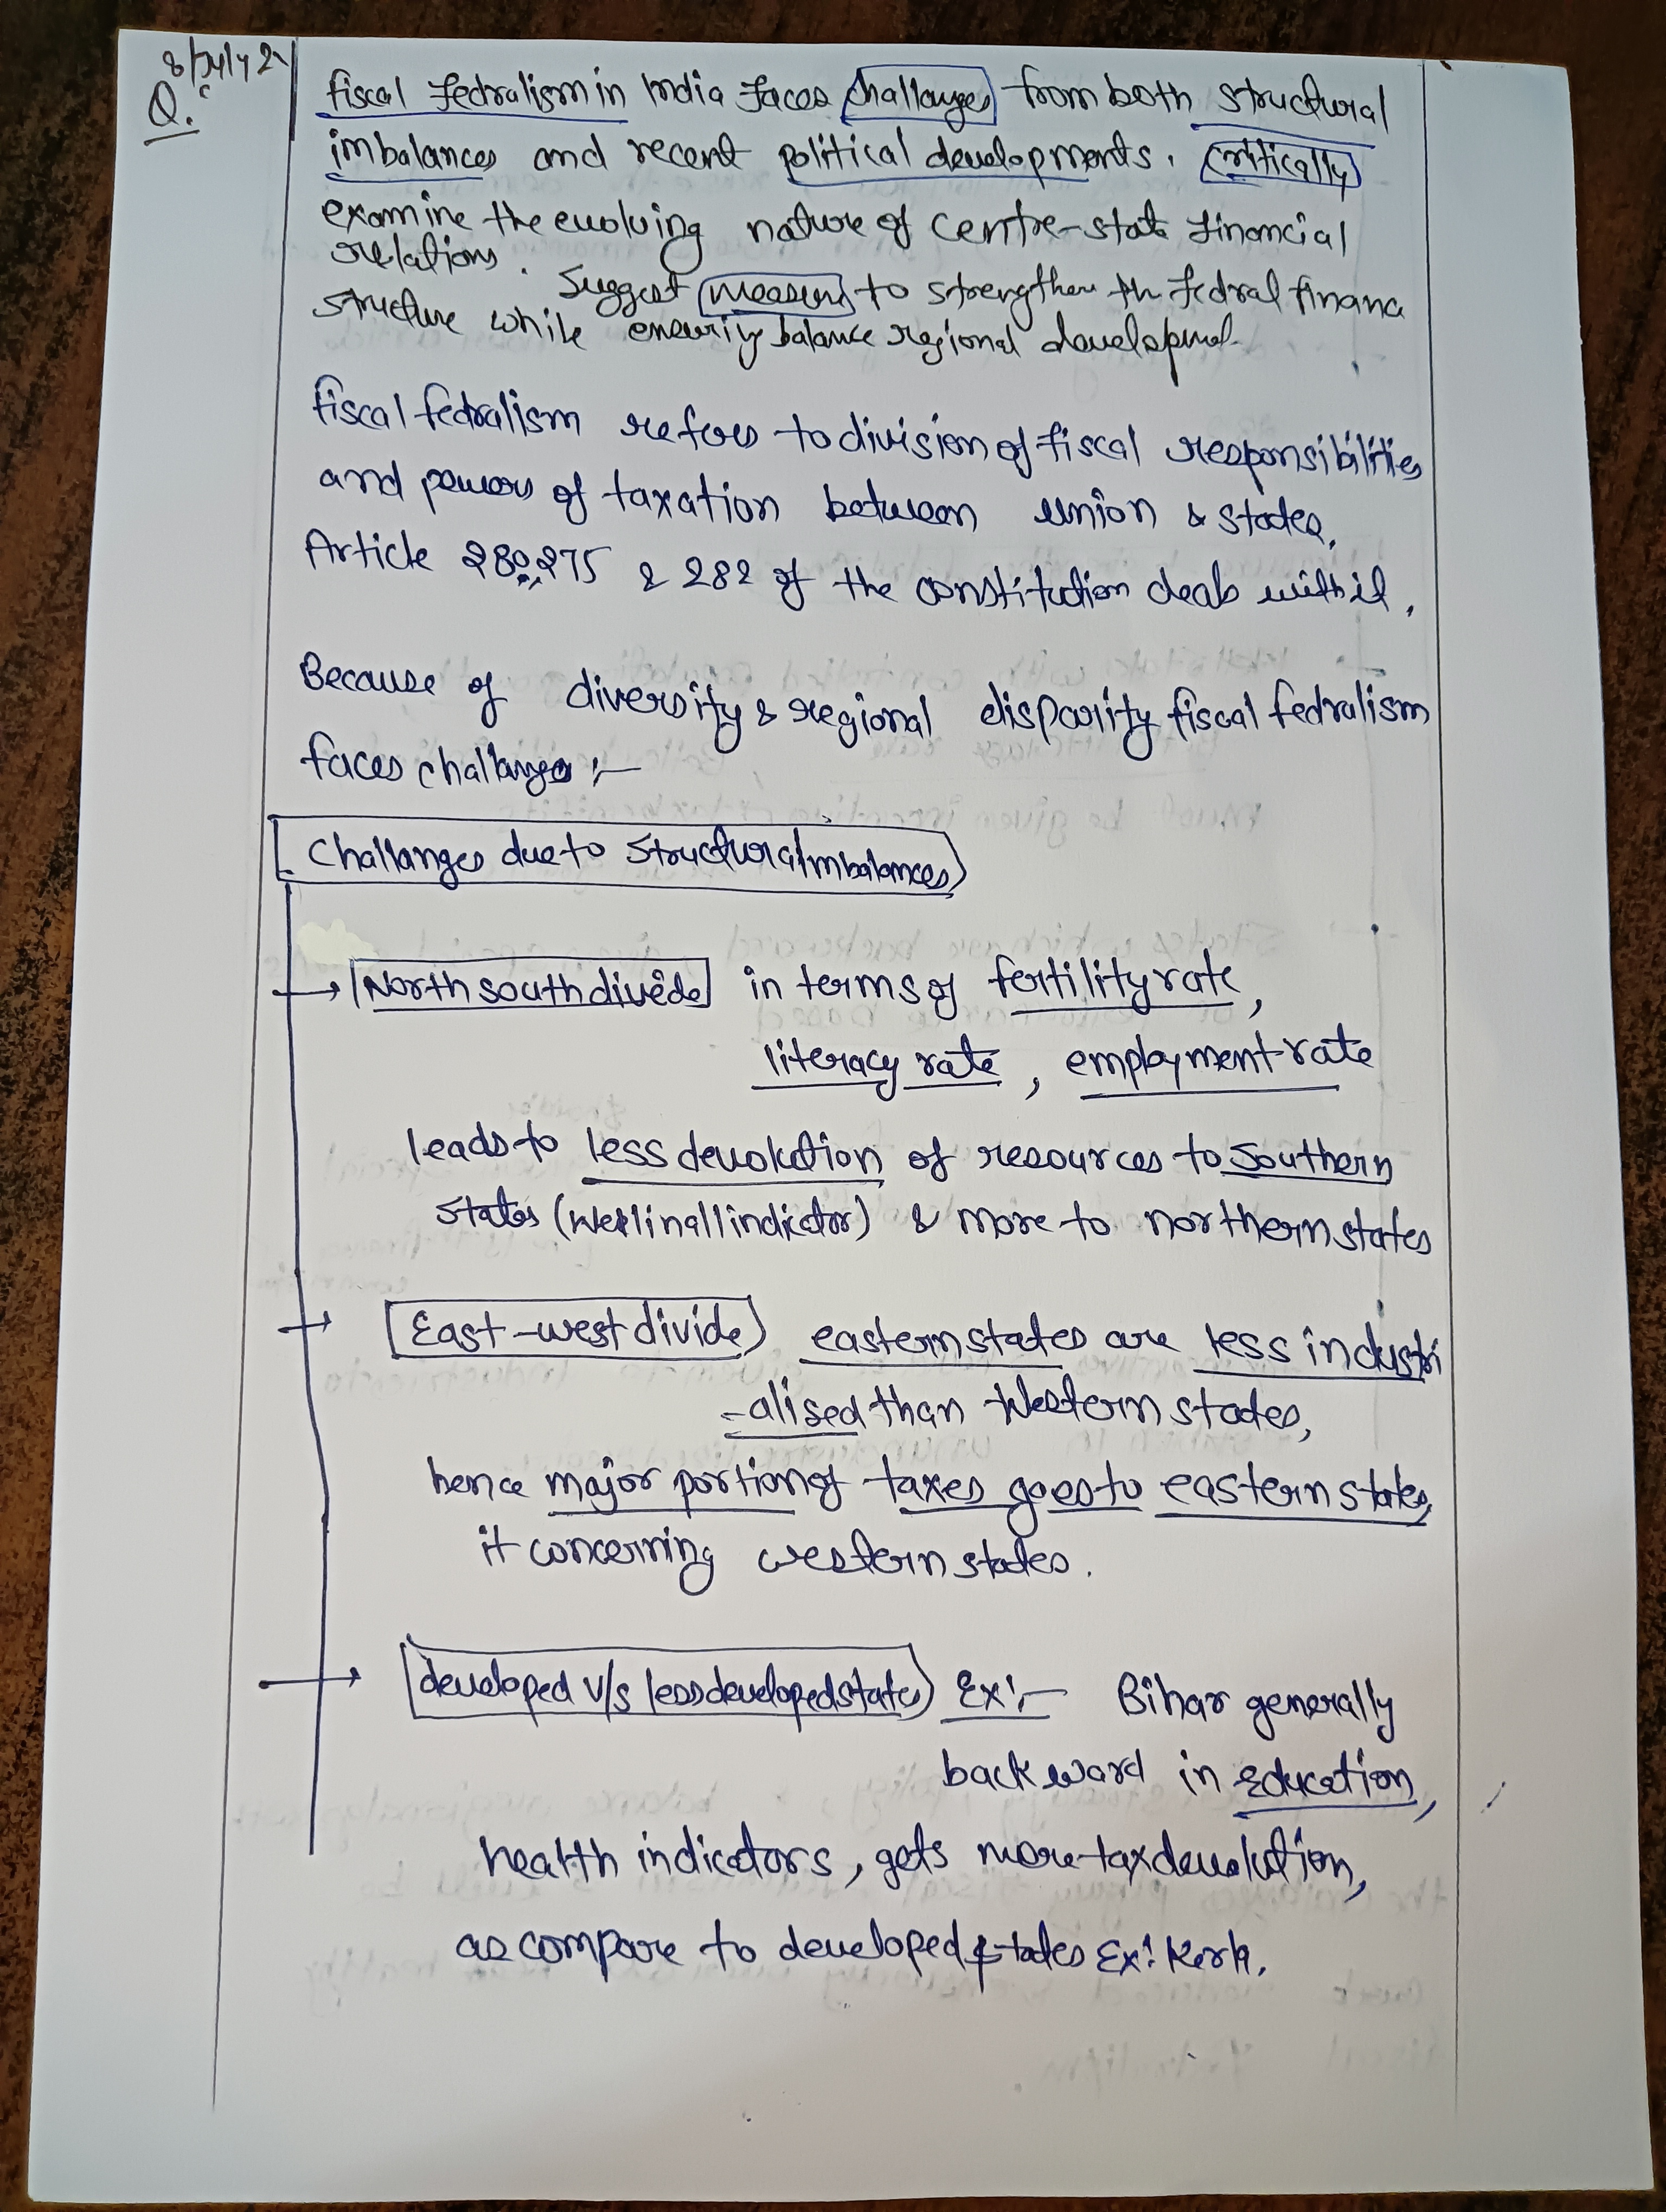 8/July 2
Q.
fiscal fedralism in India faces challanges from both structural
imbalances and recent political developments. Critically
examine the evolving nature of centre-state financial
relations. Suggest measures to strengthen the fedral financ
structure while ensuriy balance regional developmet.
fiscal fedralism refers to division of fiscal responsibilities
and powers of taxation between union & states.
Article 280, 275 & 282 of the constitution deals with it.
Because of diversity & regional disparity fiscal fedralism
faces challanges :-
Challanges due to structural imbalances
North south divide in terms of fertility rate,
literacy rate, employment rate
leads to less devolution of resources to southern
states (well in all indicator) & more to northern states
East-west divide eastern states are less industri
-alised than western states,
hence major portion of taxes goes to eastern states,
it concerning western states.
developed v/s less developed states Ex:- Bihar generally
backward in education,
health indicators, gets more tax devolution,
as compare to developed states Ex: Kerla.